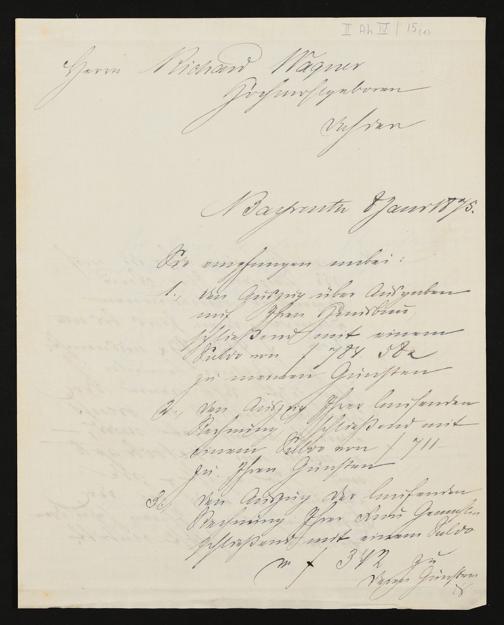 II Ah IV / 15 (1)
Herrn Richard Wagner
Hochwohlgeboren
Bayreuth 8 Janr 1875.
Sie empfangen anbei:
1., den Auszug über Ausgaben
mit Ihren Hausbau
schließend mit einem
Saldo von f 784
zu meinen Günsten
2., den Auszug Ihrer laufenden
Rechnung schließend mit
einem Saldo von f 711
zu Ihren Günsten
3., den Auszug der laufenden
Rechnung Ihrer Frau Gemahlin
schließend mit einem Saldo
v. f 342 zu
deren Günsten